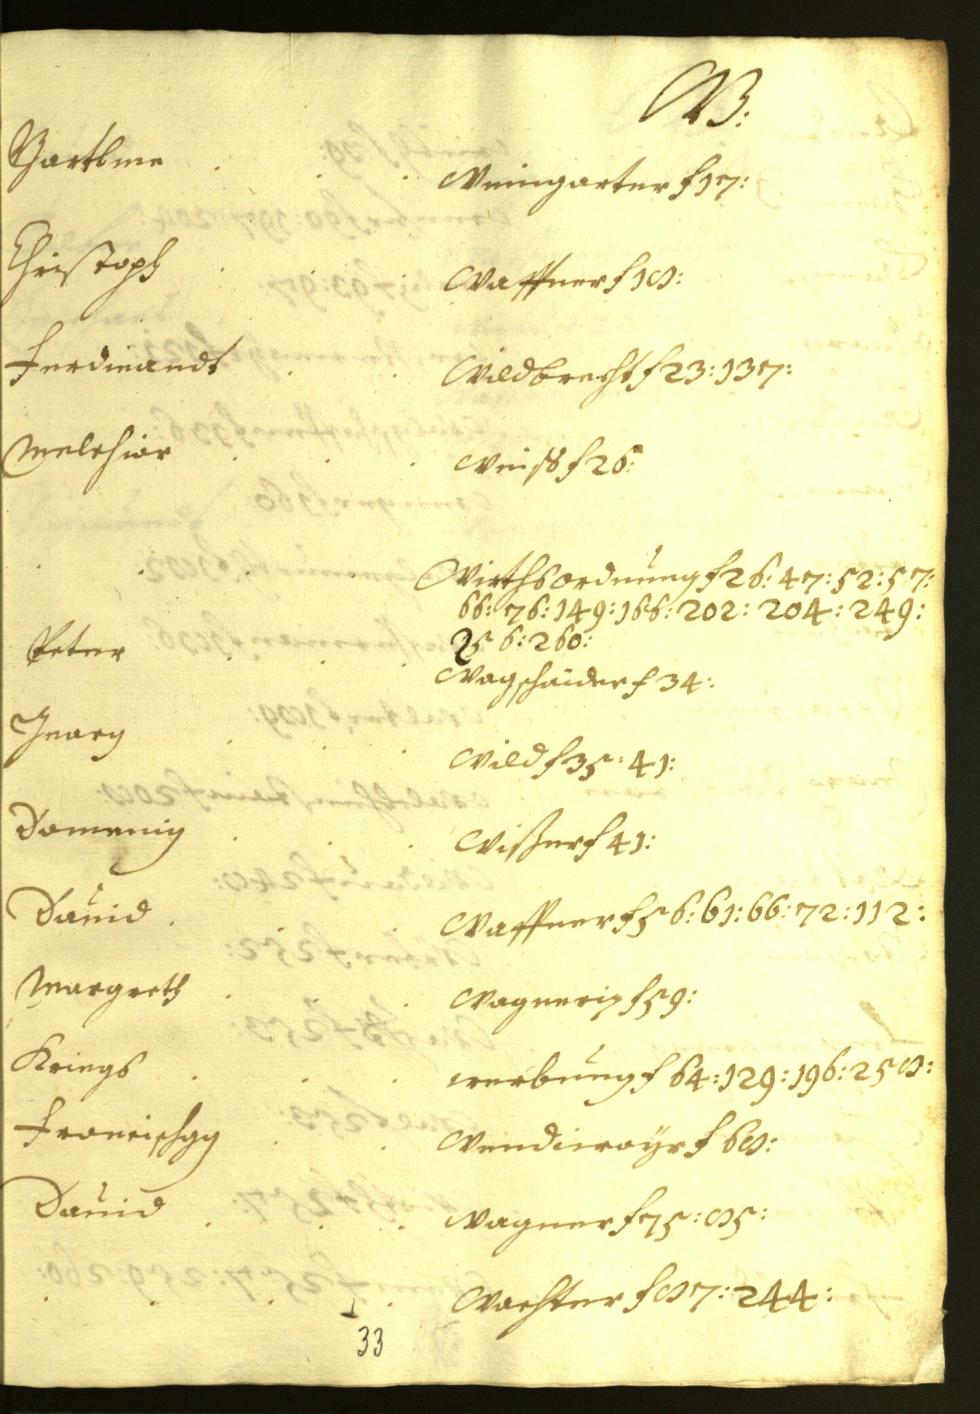 W:
Bartlme . . . Weingarter f 17:
Christoph . . . Waffner f 18:
Ferdinandt . . Wildbrecht f 23: 137:
Melchior . . . Weiss f 26:
. . . Wirthsordnung f 26: 47: 52: 57:
66: 76: 149: 166: 202: 204: 249:
256: 260:
Peter . . . Wagschaider f 34:
Georg . . . Wild f 35: 41:
Domenig . . . Wißner f 41:
Dauid . . . Waffner f 56: 61: 66: 72: 112:
Margreth . . . Wagnerin f 59:
Kriegs . . . werbung f 64: 129: 196: 258:
f 68:
Dauid . . . Wagner f 75: 85:
. . . . Wachter f 87: 244:
33